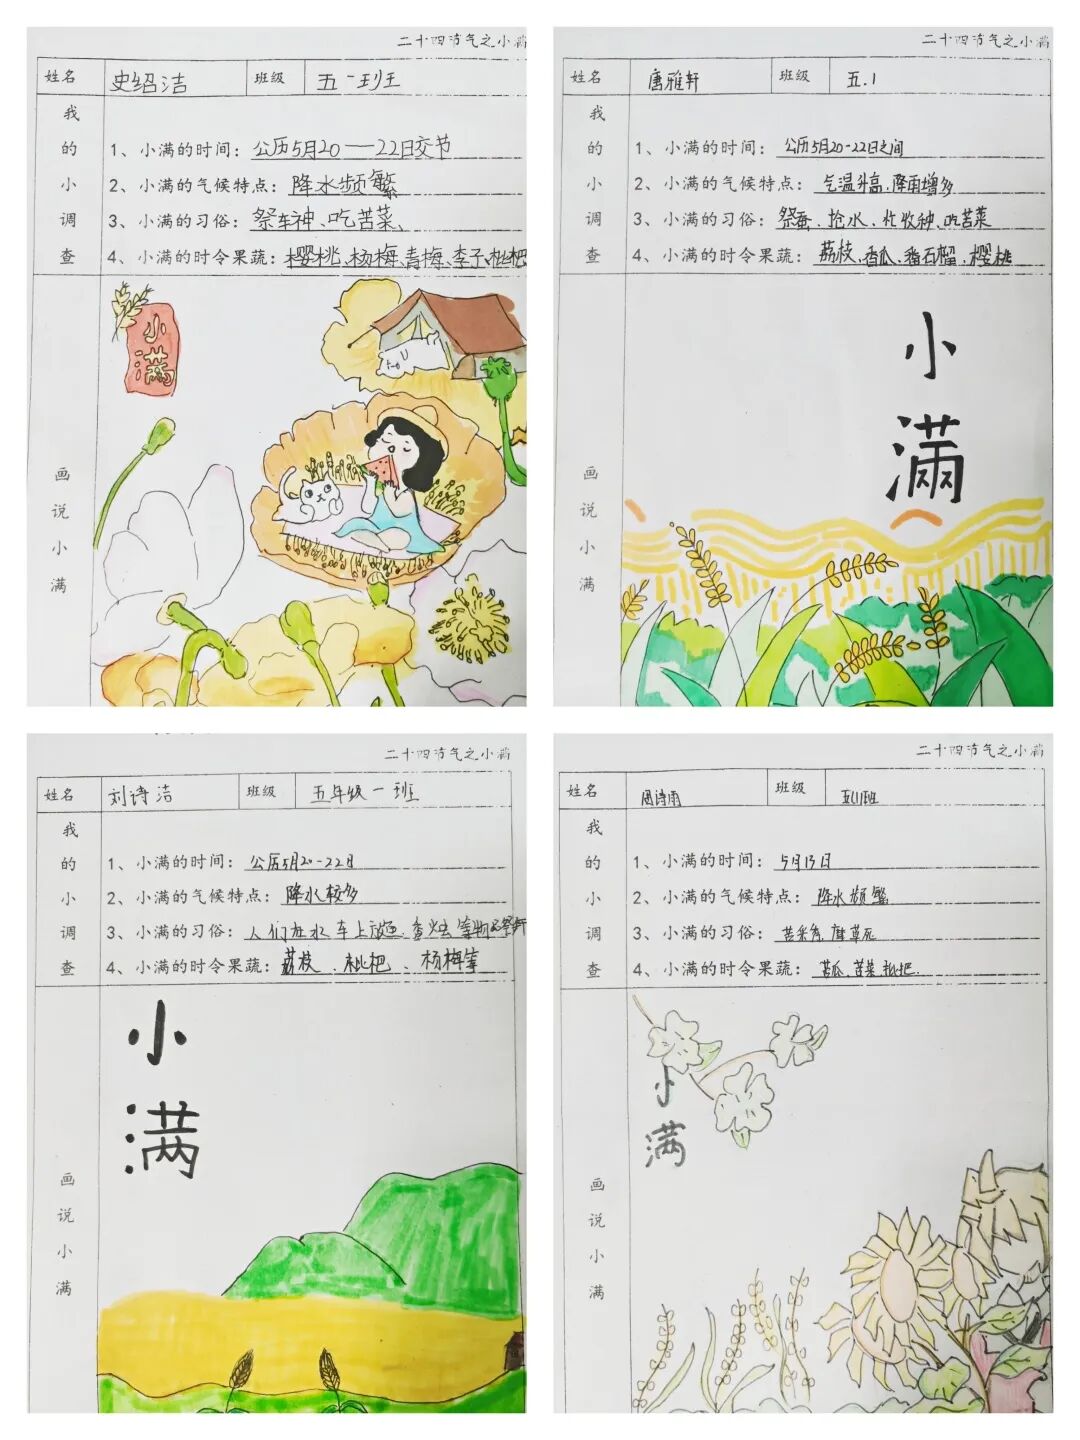 二十四节气之小满
姓名 史绍洁 班级 五一班
我的小调查
1、小满的时间：公历5月20——22日交节
2、小满的气候特点：降水频繁
3、小满的习俗：祭车神、吃苦菜、
4、小满的时令果蔬：樱桃、杨梅、青梅、李子、枇杷
画说小满
小满
二十四节气之小满
姓名 唐雅轩 班级 五.1
我的小调查
1、小满的时间：公历5月20-22日之间
2、小满的气候特点：气温升高、降雨增多
3、小满的习俗：祭蚕、抢水、忙收种、吃苦菜
4、小满的时令果蔬：荔枝、香瓜、番石榴、樱桃
画说小满
小满
二十四节气之小满
姓名 刘诗洁 班级 五年级一班
我的小调查
1、小满的时间：公历5月20-22日
2、小满的气候特点：降水较多
3、小满的习俗：人们在水车上放鱼、香烛等物品祭
4、小满的时令果蔬：荔枝、枇杷、杨梅等
画说小满
小满
二十四节气之小满
姓名 周诗雨 班级 五(1)班
我的小调查
1、小满的时间：5月13日
2、小满的气候特点：降水频繁
3、小满的习俗：苦菜秀、靡草死
4、小满的时令果蔬：苦瓜、苦菜、枇杷.
画说小满
小满